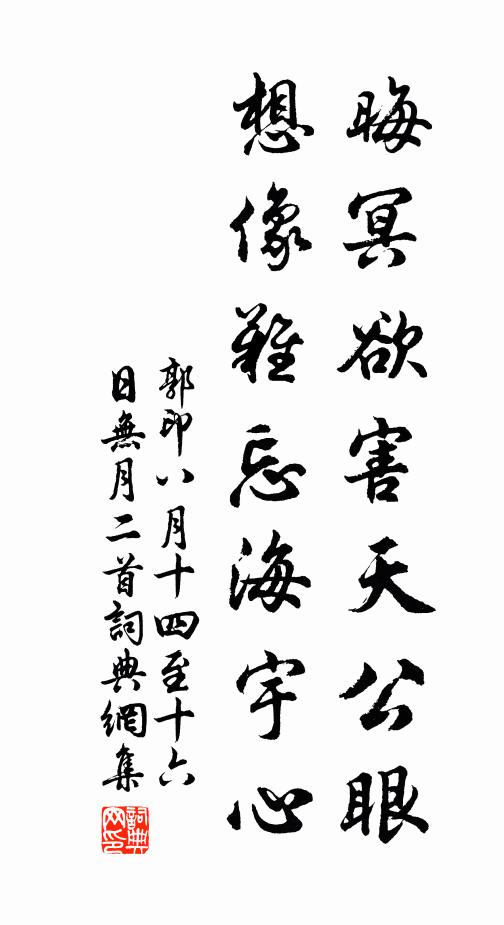 晦冥欲害天公眼
想像難忘海宇心
郭印八月十四至十六
日無月二首詞典網集
詞典
网印